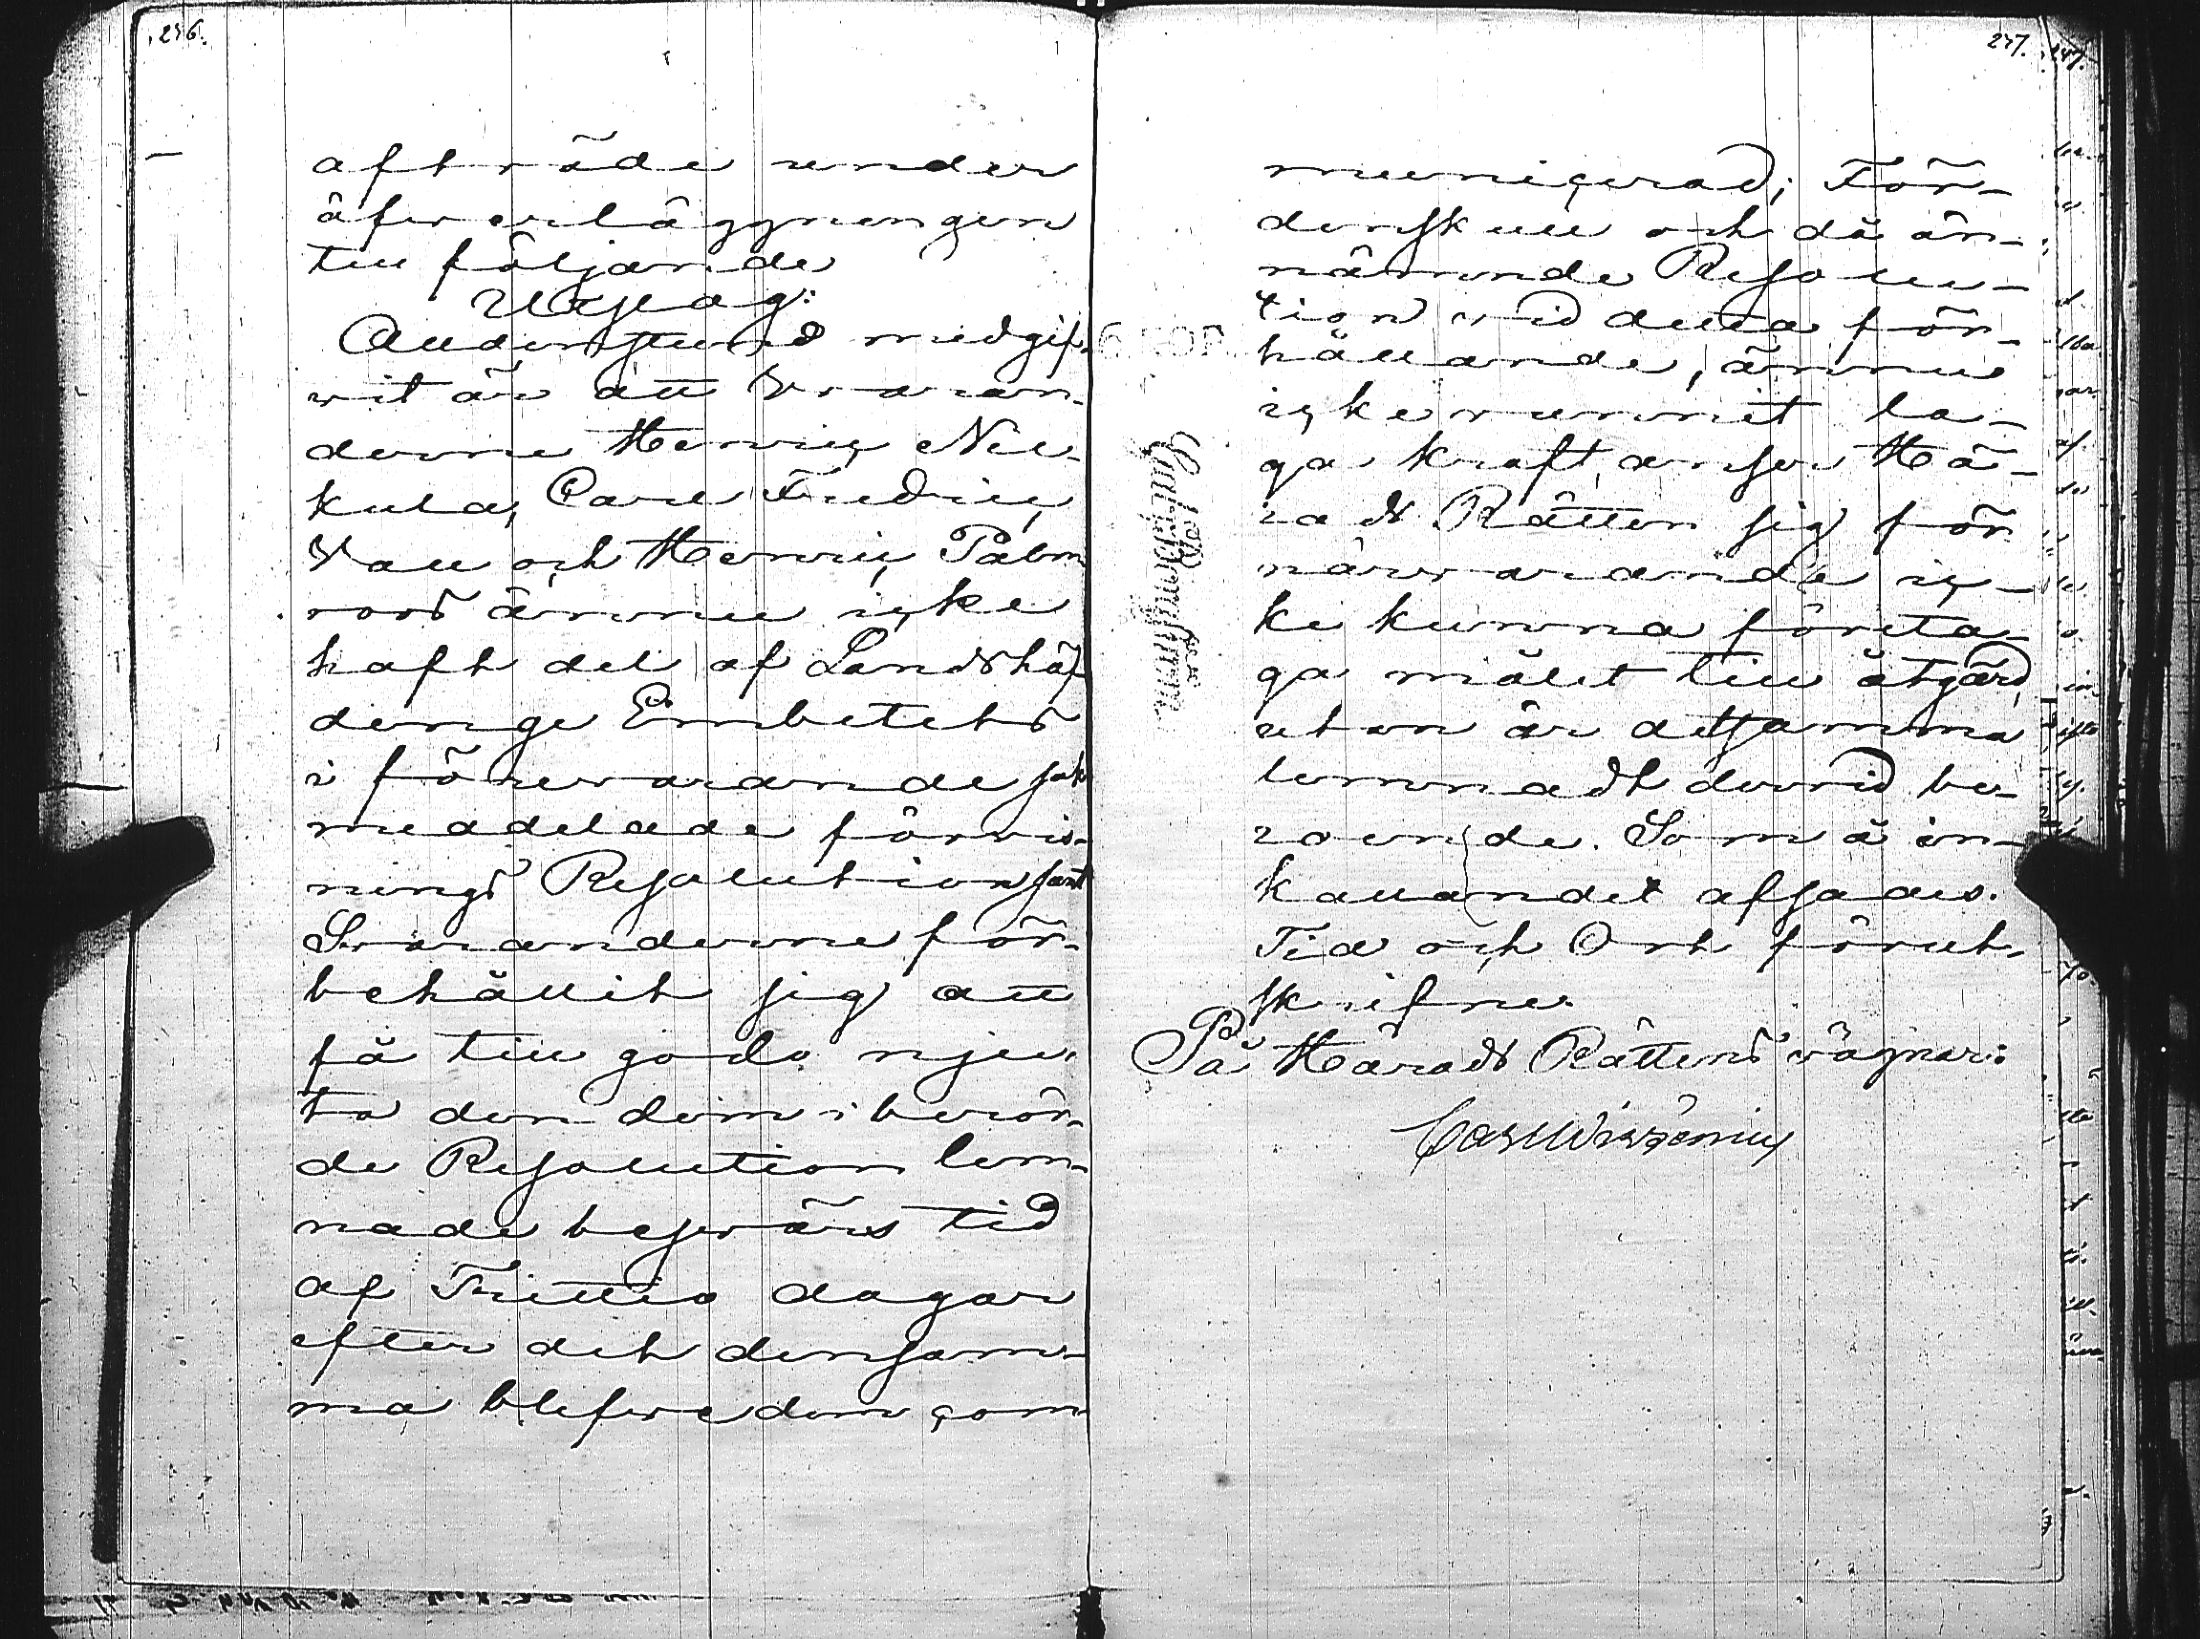 246.
afträde under
öfverläggningen
till följande
Utslag:
Alldenstund medgif-
vit är att Svaran-
derne Henric Nii-
kula, Carl Fredric
Wall och Henric Palm
roos ännu icke
haft del af Landshöf
dinge Embetets
i förevarande sak
meddelade förvis-
nings Resolution samt
Svaranderne för-
behållit sig att
få till godo nju-
ta den dem i berör-
de Resolution lem-
nade besvärs tid
af Trettio dagar
efter det densam-
ma blifvit dem com
247.
municerad; För-
denskull och då om-
nämnde Resolu-
tion vid detta för-
hållande, ännu
icke vunnit la-
ga kraft, anser Hä-
rads Rätten sig för
närvarande ic-
ke kunna företa-
ga målet till åtgärd
utan är detsamma
lemnadt dervid be-
roende. Som å in-
kallandet afsades.
Tid och Ort förut-
skrifne.
På Härads Rättens vägnar: